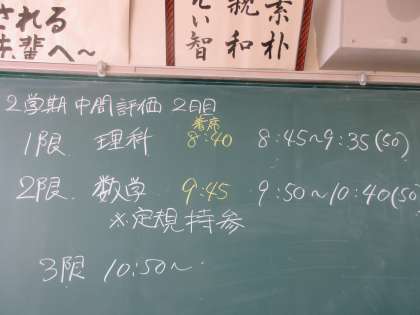 される
先輩へ～
素朴
親和
い智
2学期 中間評価 2日目
着席
1限 理科 8:40 8:45～9:35(50)
2限 数学 9:45 9:50～10:40(50
※定規持参
3限 10:50～